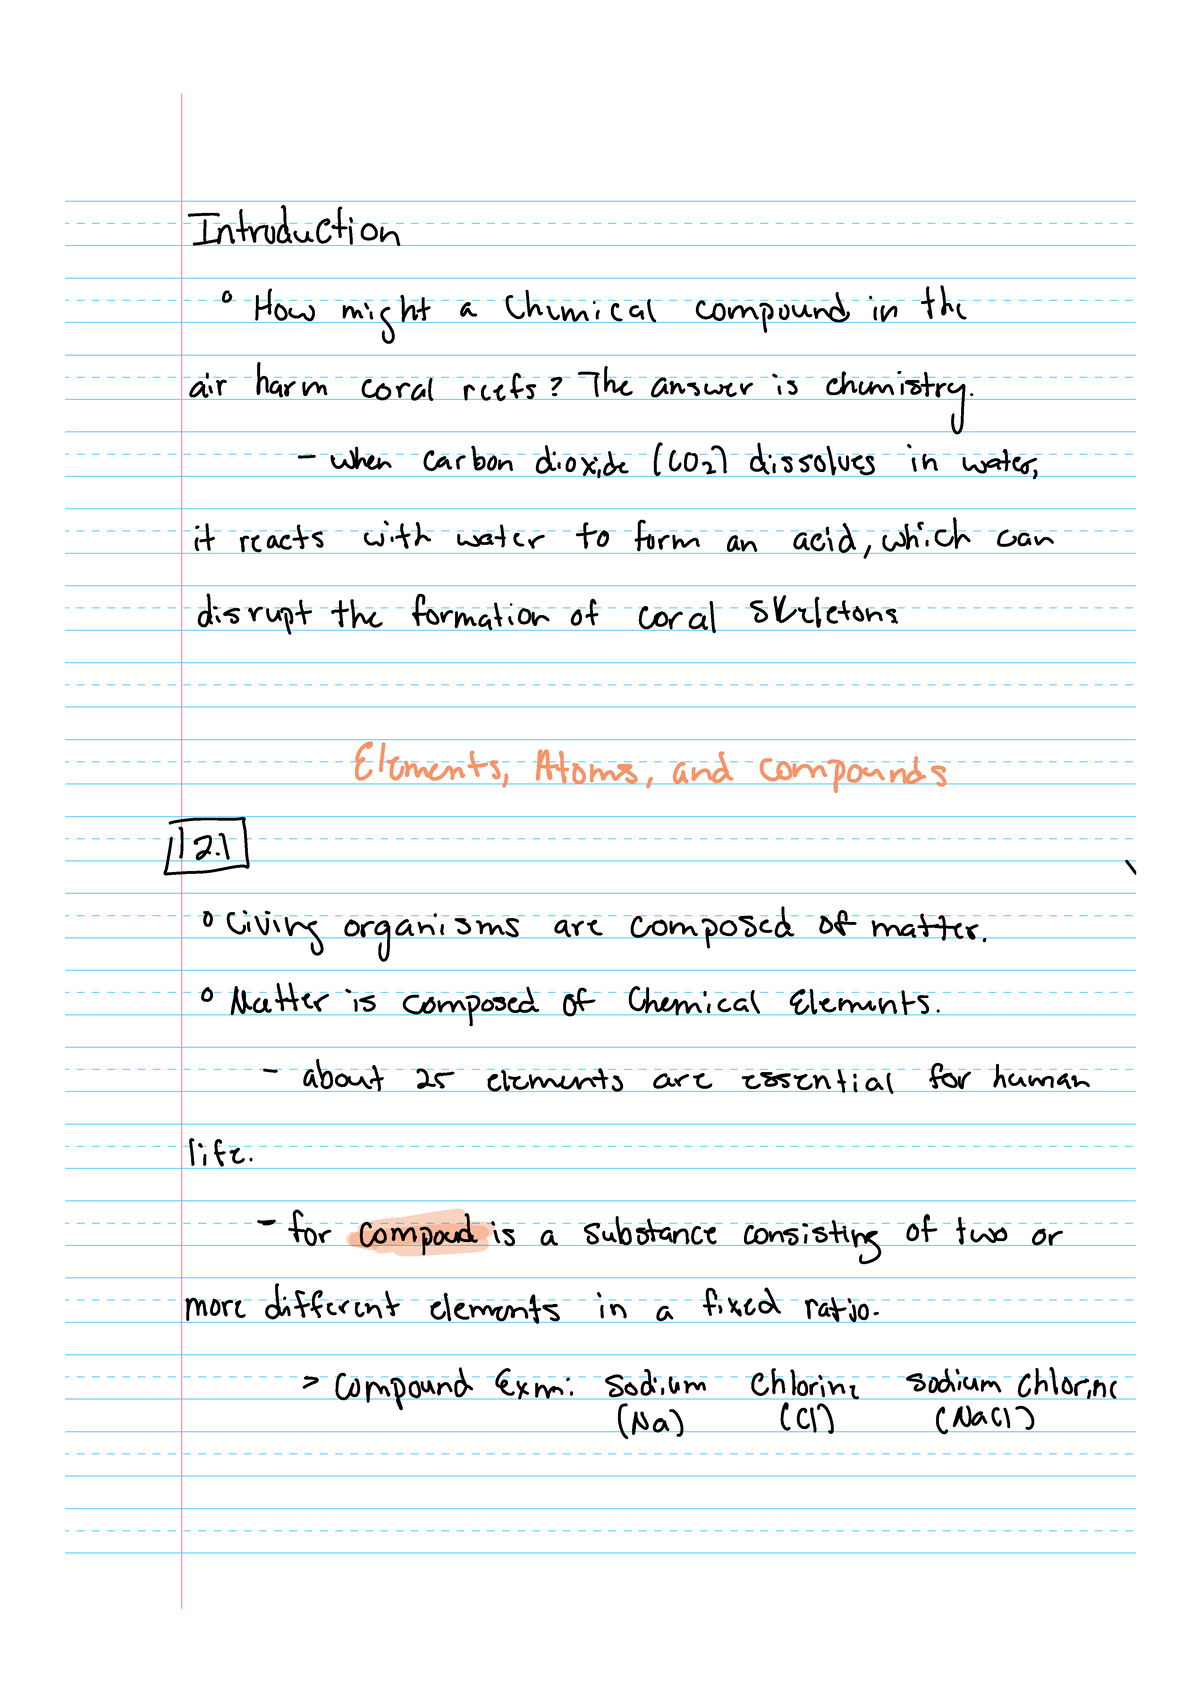 Introduction
° How might a Chemical compound in the
air harm coral reefs? The answer is chemistry.
- when carbon dioxide (CO2) dissolves in water,
it reacts with water to form an acid, which can
disrupt the formation of coral skeletons
Elements, Atoms, and compounds
2.1
° Living organisms are composed of matter.
° Matter is composed of Chemical Elements.
- about 25 elements are essential for human
life.
- for compoud is a substance consisting of two or
more different elements in a fixed ratio.
> Compound Exm: Sodium Chlorine Sodium Chlorine
(Na) (Cl) (NaCl)